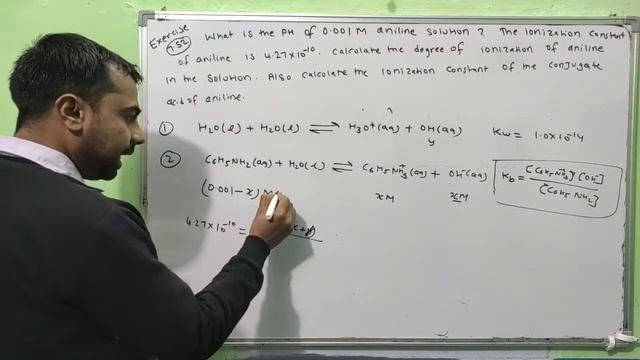 Exercise
7.52
What is the PH of 0.001 M aniline solution ? The ionization constant
of aniline is 4.27×10⁻¹⁰. Calculate the degree of ionization of aniline
in the solution. Also calculate the ionization constant of the conjugate
acid of aniline.
① H₂O(l) + H₂O(l) ⇌ H₃O⁺(aq) + OH⁻(aq) Kw = 1.0×10⁻¹⁴
y
② C₆H₅NH₂(aq) + H₂O(l) ⇌ C₆H₅NH₃⁺(aq) + OH⁻(aq) Kb = [C₆H₅NH₃⁺][OH⁻] / [C₆H₅NH₂]
(0.001-x) M xM xM
4.27×10⁻¹⁰ =